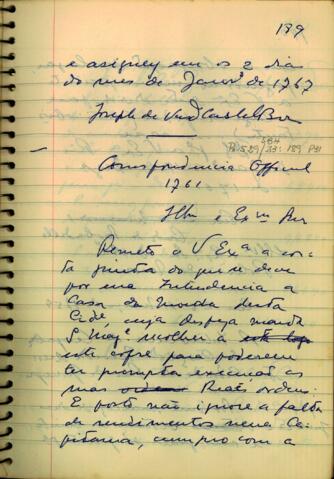 189
e asigney em os 2 dia
do mes de Janrº de 1767
Joseph de Vasc Castel Br
Correspondencia Official
1761
Illm e Exmo Snr
Remeto a V Exª a con-
ta junta do que se deve
por esta Intendencia a
Casa da Moeda desta
Cidº, cuja despeza manda
S Magº recolher a
este cofre para poderem
ter prompta execução as
mas Reaes ordens.
E posto não ignore a falta
de rendimentos nessa Ca-
pitania, cumpro com a